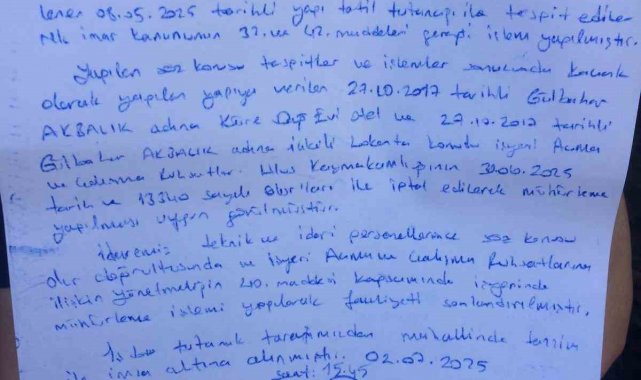 lenen 08.05.2025 tarihli yapı tatil tutanağı ile tespit edilen
imar kanununun 32. ve 42. maddeleri gereği işlem yapılmıştır.
Yapılan söz konusu tespitler ve işlemler sonucunda kaçak
olarak yapılan yapıya verilen 27.10.2017 tarihli Gülbahar
AKBALIK adına Küre Dağ Evi otel ve 27.10.2017 tarihli
Gülbahar AKBALIK adına içkili Lokanta konulu işyeri Açma
ve Çalışma Ruhsatları. Ulus Kaymakamlığının 30.06.2025
tarih ve 13340 sayılı olurları ile iptal edilerek mühürleme
yapılması uygun görülmüştür.
İdaremiz teknik ve idari personellerince söz konusu
olur doğrultusunda ve işyeri Açma ve Çalışma Ruhsatlarına
ilişkin yönetmeliğin 40. maddesi kapsamında içerinde
mühürleme işlemi yapılarak faaliyeti sonlandırılmıştır.
İş bu tutanak tarafımızdan mahallinde tanzim
imza altına alınmıştır. 02.07.2025
saat: 15:45